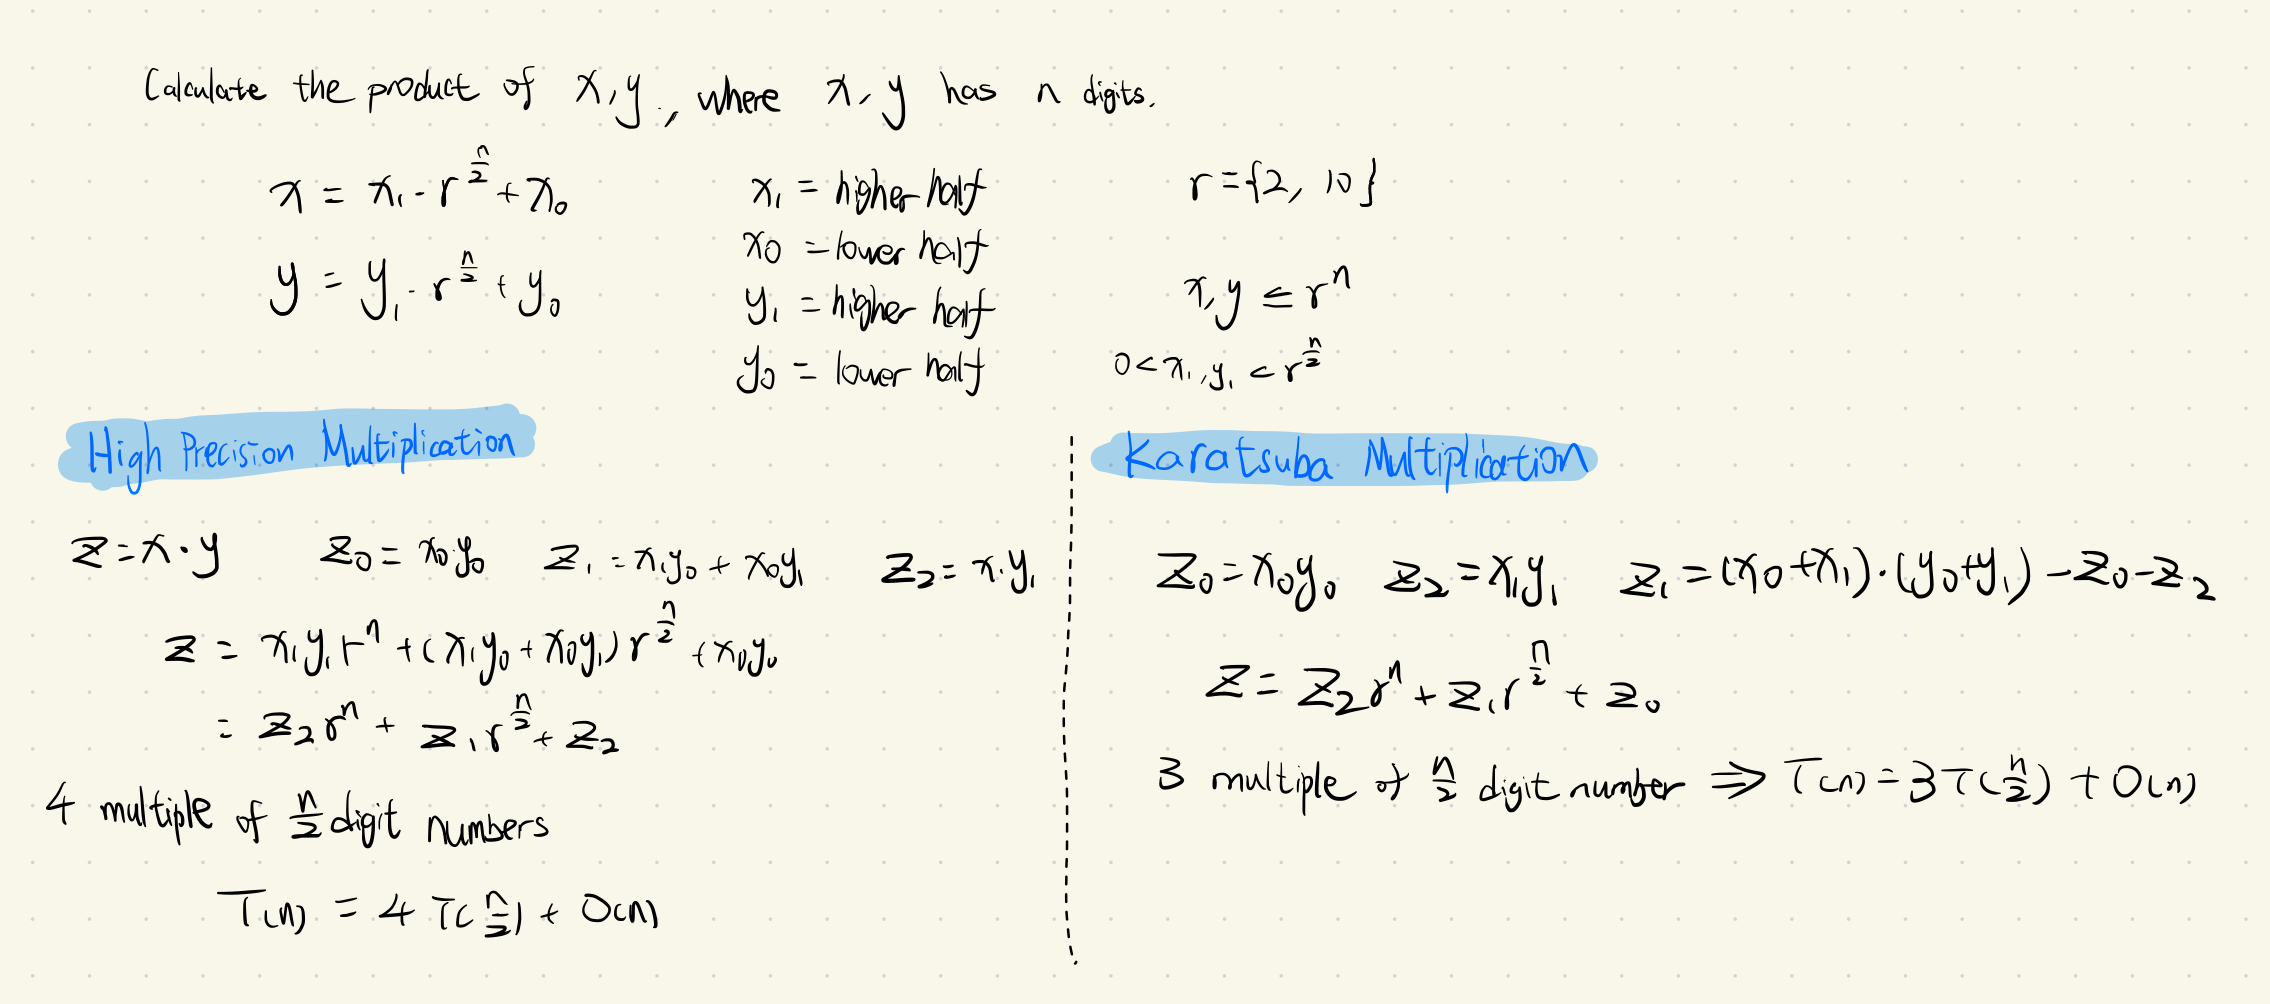 Calculate the product of x, y, where x, y has n digits.
x = x₁ · r^(n/2) + x₀
y = y₁ · r^(n/2) + y₀
x₁ = higher half
x0 = lower half
y₁ = higher half
y₀ = lower half
r = {2, 10}
x, y ≤ rⁿ
0 < x₁, y₁ < r^(n/2)
High Precision Multiplication
z = x · y z₀ = x₀y₀ z₁ = x₁y₀ + x₀y₁ z₂ = x₁y₁
z = x₁y₁rⁿ + (x₁y₀ + x₀y₁) r^(n/2) + x₀y₀
= z₂rⁿ + z₁r^(n/2) + z₂
4 multiple of n/2 digit numbers
T(n) = 4 T(n/2) + O(n)
Karatsuba Multiplication
z₀ = x₀y₀ z₂ = x₁y₁ z₁ = (x₀+x₁) · (y₀+y₁) - z₀ - z₂
z = z₂rⁿ + z₁r^(n/2) + z₀
3 multiple of n/2 digit number ⇒ T(n) = 3T(n/2) + O(n)